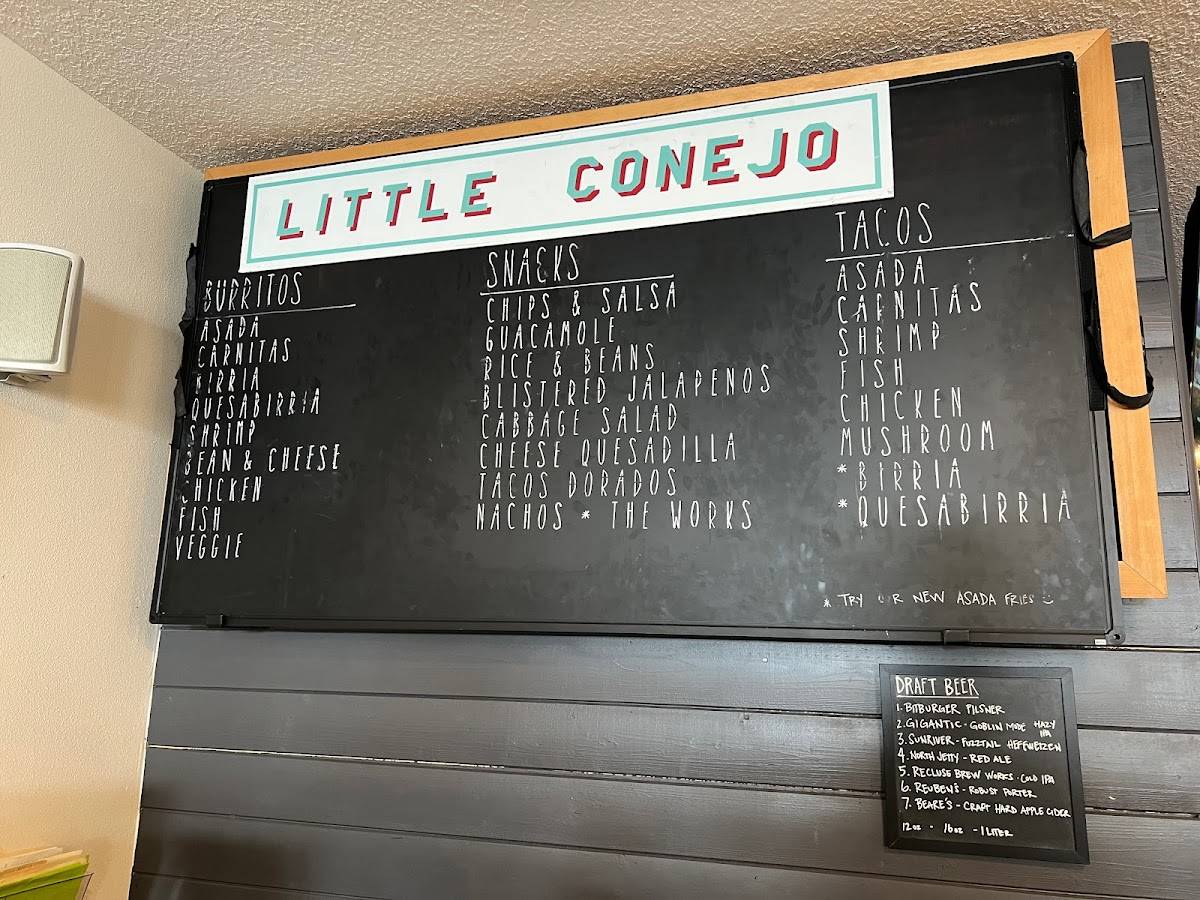 LITTLE CONEJO
BURRITOS
ASADA
CARNITAS
BIRRIA
QUESABIRRIA
SHRIMP
BEAN & CHEESE
CHICKEN
FISH
VEGGIE
SNACKS
CHIPS & SALSA
GUACAMOLE
RICE & BEANS
BLISTERED JALAPENOS
CABBAGE SALAD
CHEESE QUESADILLA
TACOS DORADOS
NACHOS * THE WORKS
TACOS
ASADA
CARNITAS
SHRIMP
FISH
CHICKEN
MUSHROOM
* BIRRIA
* QUESABIRRIA
* TRY OUR NEW ASADA FRIES
DRAFT BEER
1. BITBURGER PILSNER
2. GIGANTIC - GOBLIN MODE HAZY IPA
3. SUNRIVER - FUZZTAIL HEFFWEIZEN
4. NORTH JETTY - RED ALE
5. RECLUSE BREW WORKS - COLD IPA
6. REUBEN'S - ROBUST PORTER
7. BEARE'S - CRAFT HARD APPLE CIDER
12oz - 16oz - 1 LITER